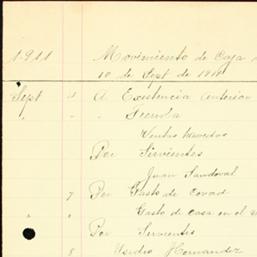 1911 Movimiento de Caja
10 de Sept de 1911
Sept 4 A Existencia anterior
" " " Tienda
Ventas
Por Sirvientes
Juan Sandoval
7 Por Gasto de
" " Gasto de casa en el
Por Sirvientes
8 Isidro Hernandez